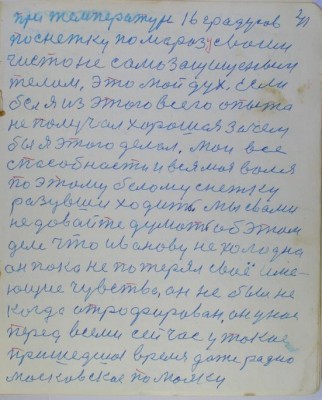 21
при температуре 16 градусов
поснежку поморозу своим
чисто не само защищеным
телим, это мой дух. Если
бся я из этого всего опыта
не получал хорошая зачем
бы я этого делал. Мои все
способности и вся моя воля
по этому белому снежку
разувши ходить. Мы свами
недовайте думать об этом
деле что иванову не холодна
он пока не потерял своё име-
ющие чувства, он не был не
когда атрофирован, он у нас
перед всеми сейчас у токое
пришедшоя время даже радио
московское по маяку